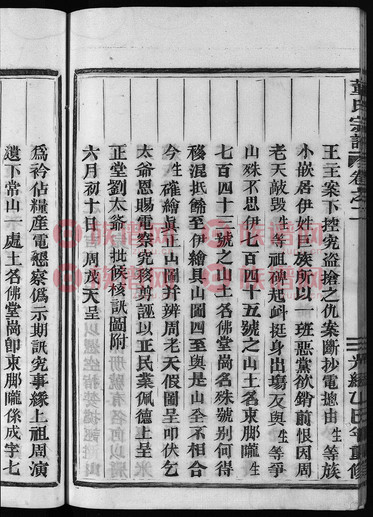 王主案下控究盜搶之仇案斷抄電摠由生等族
小嵌居伊姓巨族所以一班惡黨欲銷前恨因周
老天敲毀生等祖碑起衅挺身出塲反與生等爭
山殊不思伊七百四十五號之山土名東脚嚨生
七百四十三號之山土名佛堂崗名殊號别何得
移混抵餙至伊繪具山圖四至與是山全不相合
今生確繪眞正山圖并辨周老天假圖呈叩伏乞
太爺恩賜電察究移剪誣以正民業佩德上呈
正堂劉太爺 批候核訊圖附
六月初十日 周放天呈
爲衿佔糧產電懇察僞示期訊究事緣上祖周演
遺下常山一處土名佛堂崗卽東脚嚨係成字七
董氏宗譜 卷之一
光緒乙巳年重修
族譜网